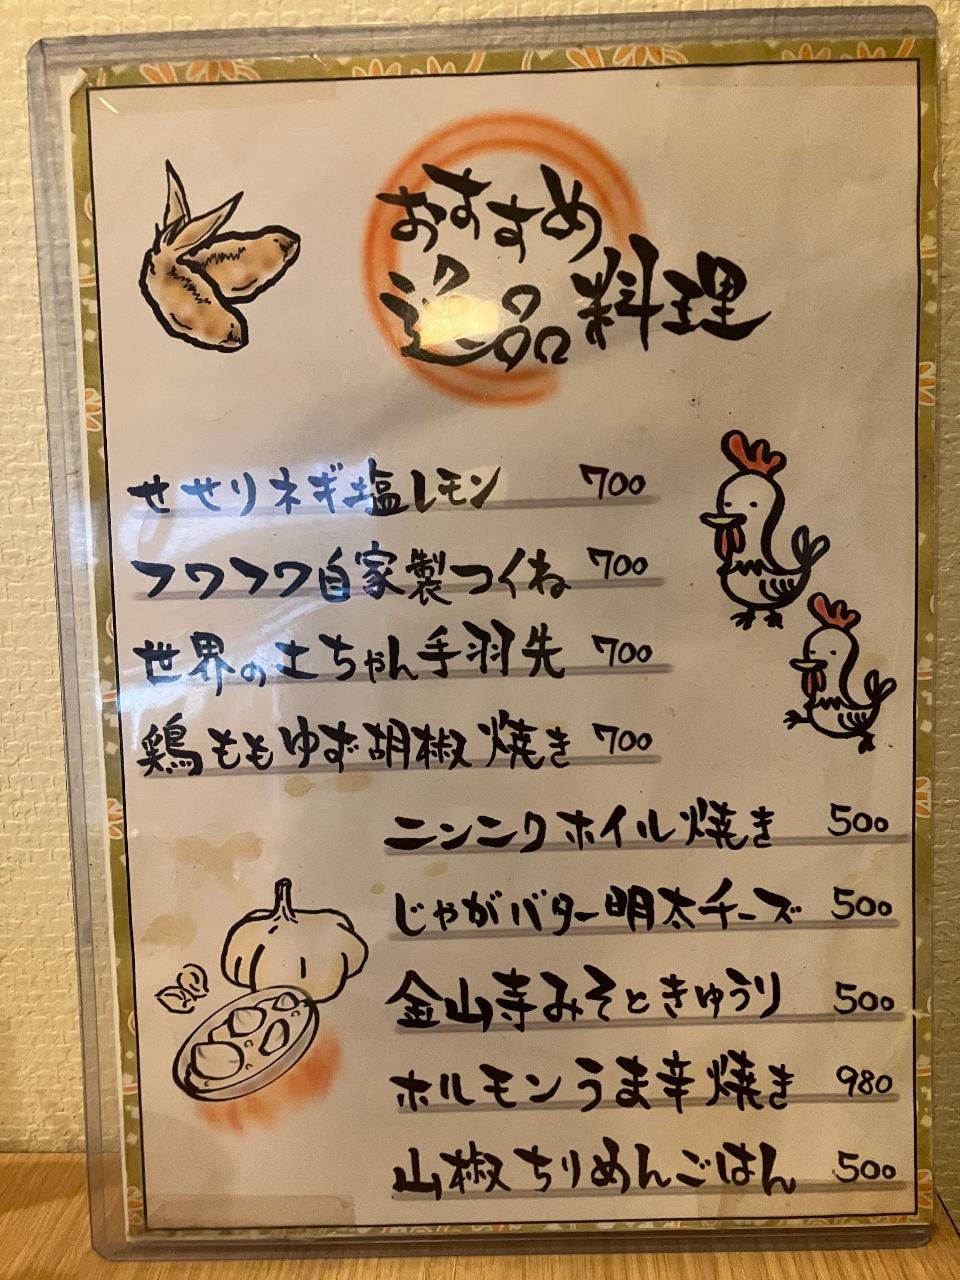 おすすめ
逸品料理
せせりネギ塩レモン 700
フワフワ自家製つくね 700
世界の土ちゃん手羽先 700
鶏ももゆず胡椒焼き 700
ニンニクホイル焼き 500
じゃがバター明太チーズ 500
金山寺みそときゅうり 500
ホルモンうま辛焼き 980
山椒ちりめんごはん 500